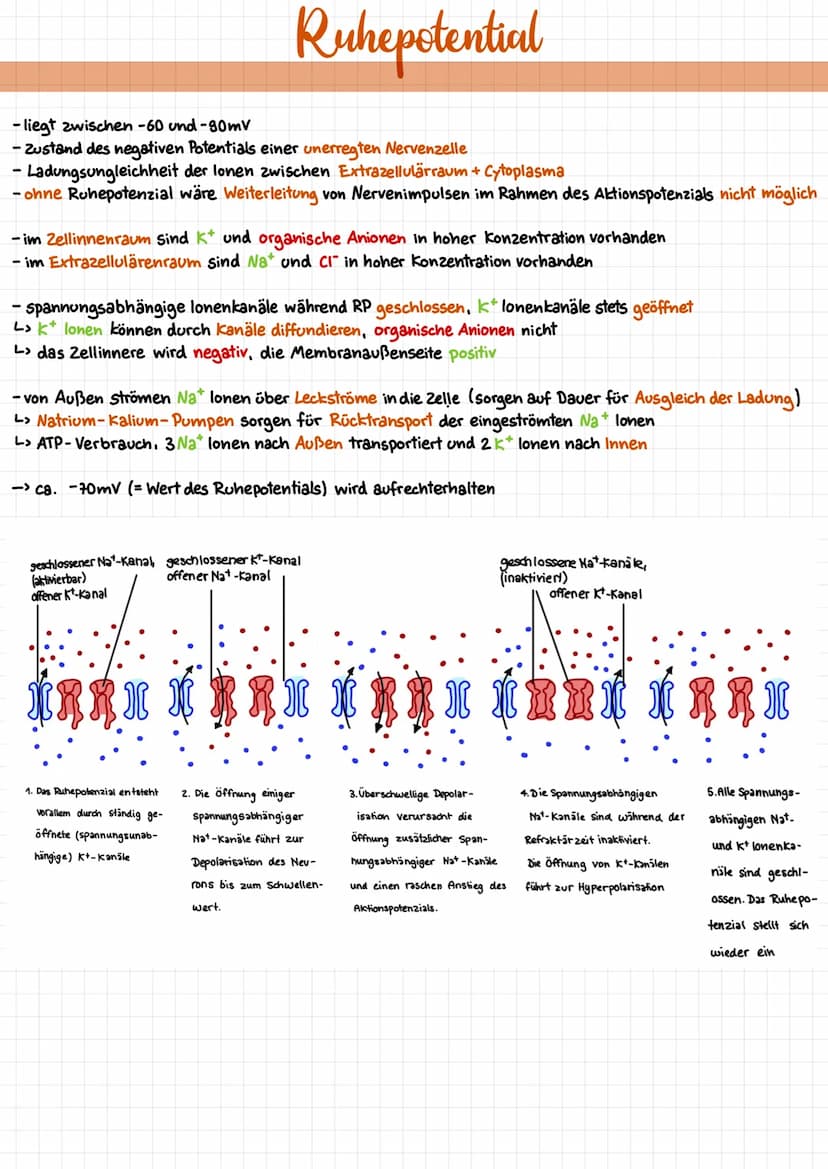 Ruhepotential
- liegt zwischen -60 und -80mV
- Zustand des negativen Potentials einer unerregten Nervenzelle
- Ladungsungleichheit der Ionen zwischen Extrazellulärraum + Cytoplasma
- ohne Ruhepotenzial wäre Weiterleitung von Nervenimpulsen im Rahmen des Aktionspotenzials nicht möglich
- im Zellinnenraum sind K⁺ und organische Anionen in hoher Konzentration vorhanden
- im Extrazellulärenraum sind Na⁺ und Cl⁻ in hoher Konzentration vorhanden
- spannungsabhängige Ionenkanäle während RP geschlossen, K⁺ Ionenkanäle stets geöffnet
↳ K⁺ Ionen können durch Kanäle diffundieren, organische Anionen nicht
↳ das Zellinnere wird negativ, die Membranaußenseite positiv
- von Außen strömen Na⁺ Ionen über Leckströme in die Zelle (sorgen auf Dauer für Ausgleich der Ladung)
↳ Natrium-Kalium-Pumpen sorgen für Rücktransport der eingeströmten Na⁺ Ionen
↳ ATP-Verbrauch, 3 Na⁺ Ionen nach Außen transportiert und 2 K⁺ Ionen nach Innen
-> ca. -70mV (= Wert des Ruhepotentials) wird aufrechterhalten
geschlossener Na⁺-Kanal,
(aktivierbar)
offener K⁺-Kanal
geschlossener K⁺-Kanal
offener Na⁺-Kanal
geschlossene Na⁺-Kanäle,
(inaktiviert)
offener K⁺-Kanal
1. Das Ruhepotenzial entsteht
vorallem durch ständig ge-
öffnete (spannungsunab-
hängige) K⁺-Kanäle
2. Die Öffnung einiger
spannungsabhängiger
Na⁺-Kanäle führt zur
Depolarisation des Neu-
rons bis zum Schwellen-
wert.
3. Überschwellige Depolar-
isation verursacht die
Öffnung zusätzlicher Span-
nungsabhängiger Na⁺-Kanäle
und einen raschen Anstieg des
Aktionspotenzials.
4. Die Spannungsabhängigen
Na⁺-Kanäle sind während der
Refraktärzeit inaktiviert.
Die Öffnung von K⁺-Kanälen
führt zur Hyperpolarisation
5. Alle Spannungs-
abhängigen Na⁺-
und K⁺ Ionenka-
näle sind geschl-
ossen. Das Ruhepo-
tenzial stellt sich
wieder ein